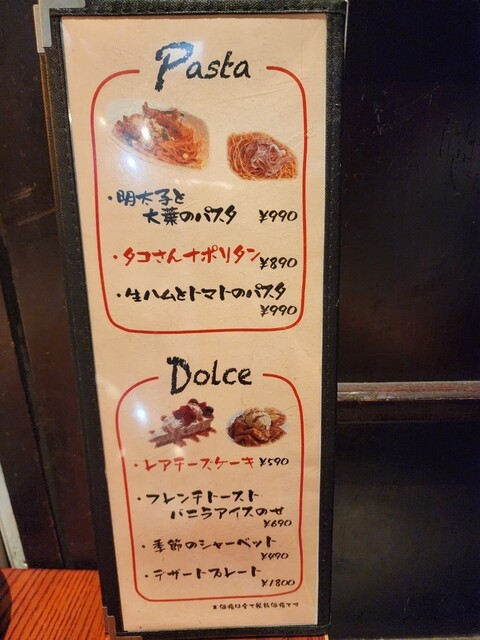 Pasta
・明太子と
大葉のパスタ ¥990
・タコさんナポリタン ¥890
・生ハムとトマトのパスタ
¥990
Dolce
・レアチーズケーキ ¥590
・フレンチトースト
バニラアイスのせ
¥690
・季節のシャーベット
¥490
・デザートプレート
¥1800
※価格は全て税抜価格です